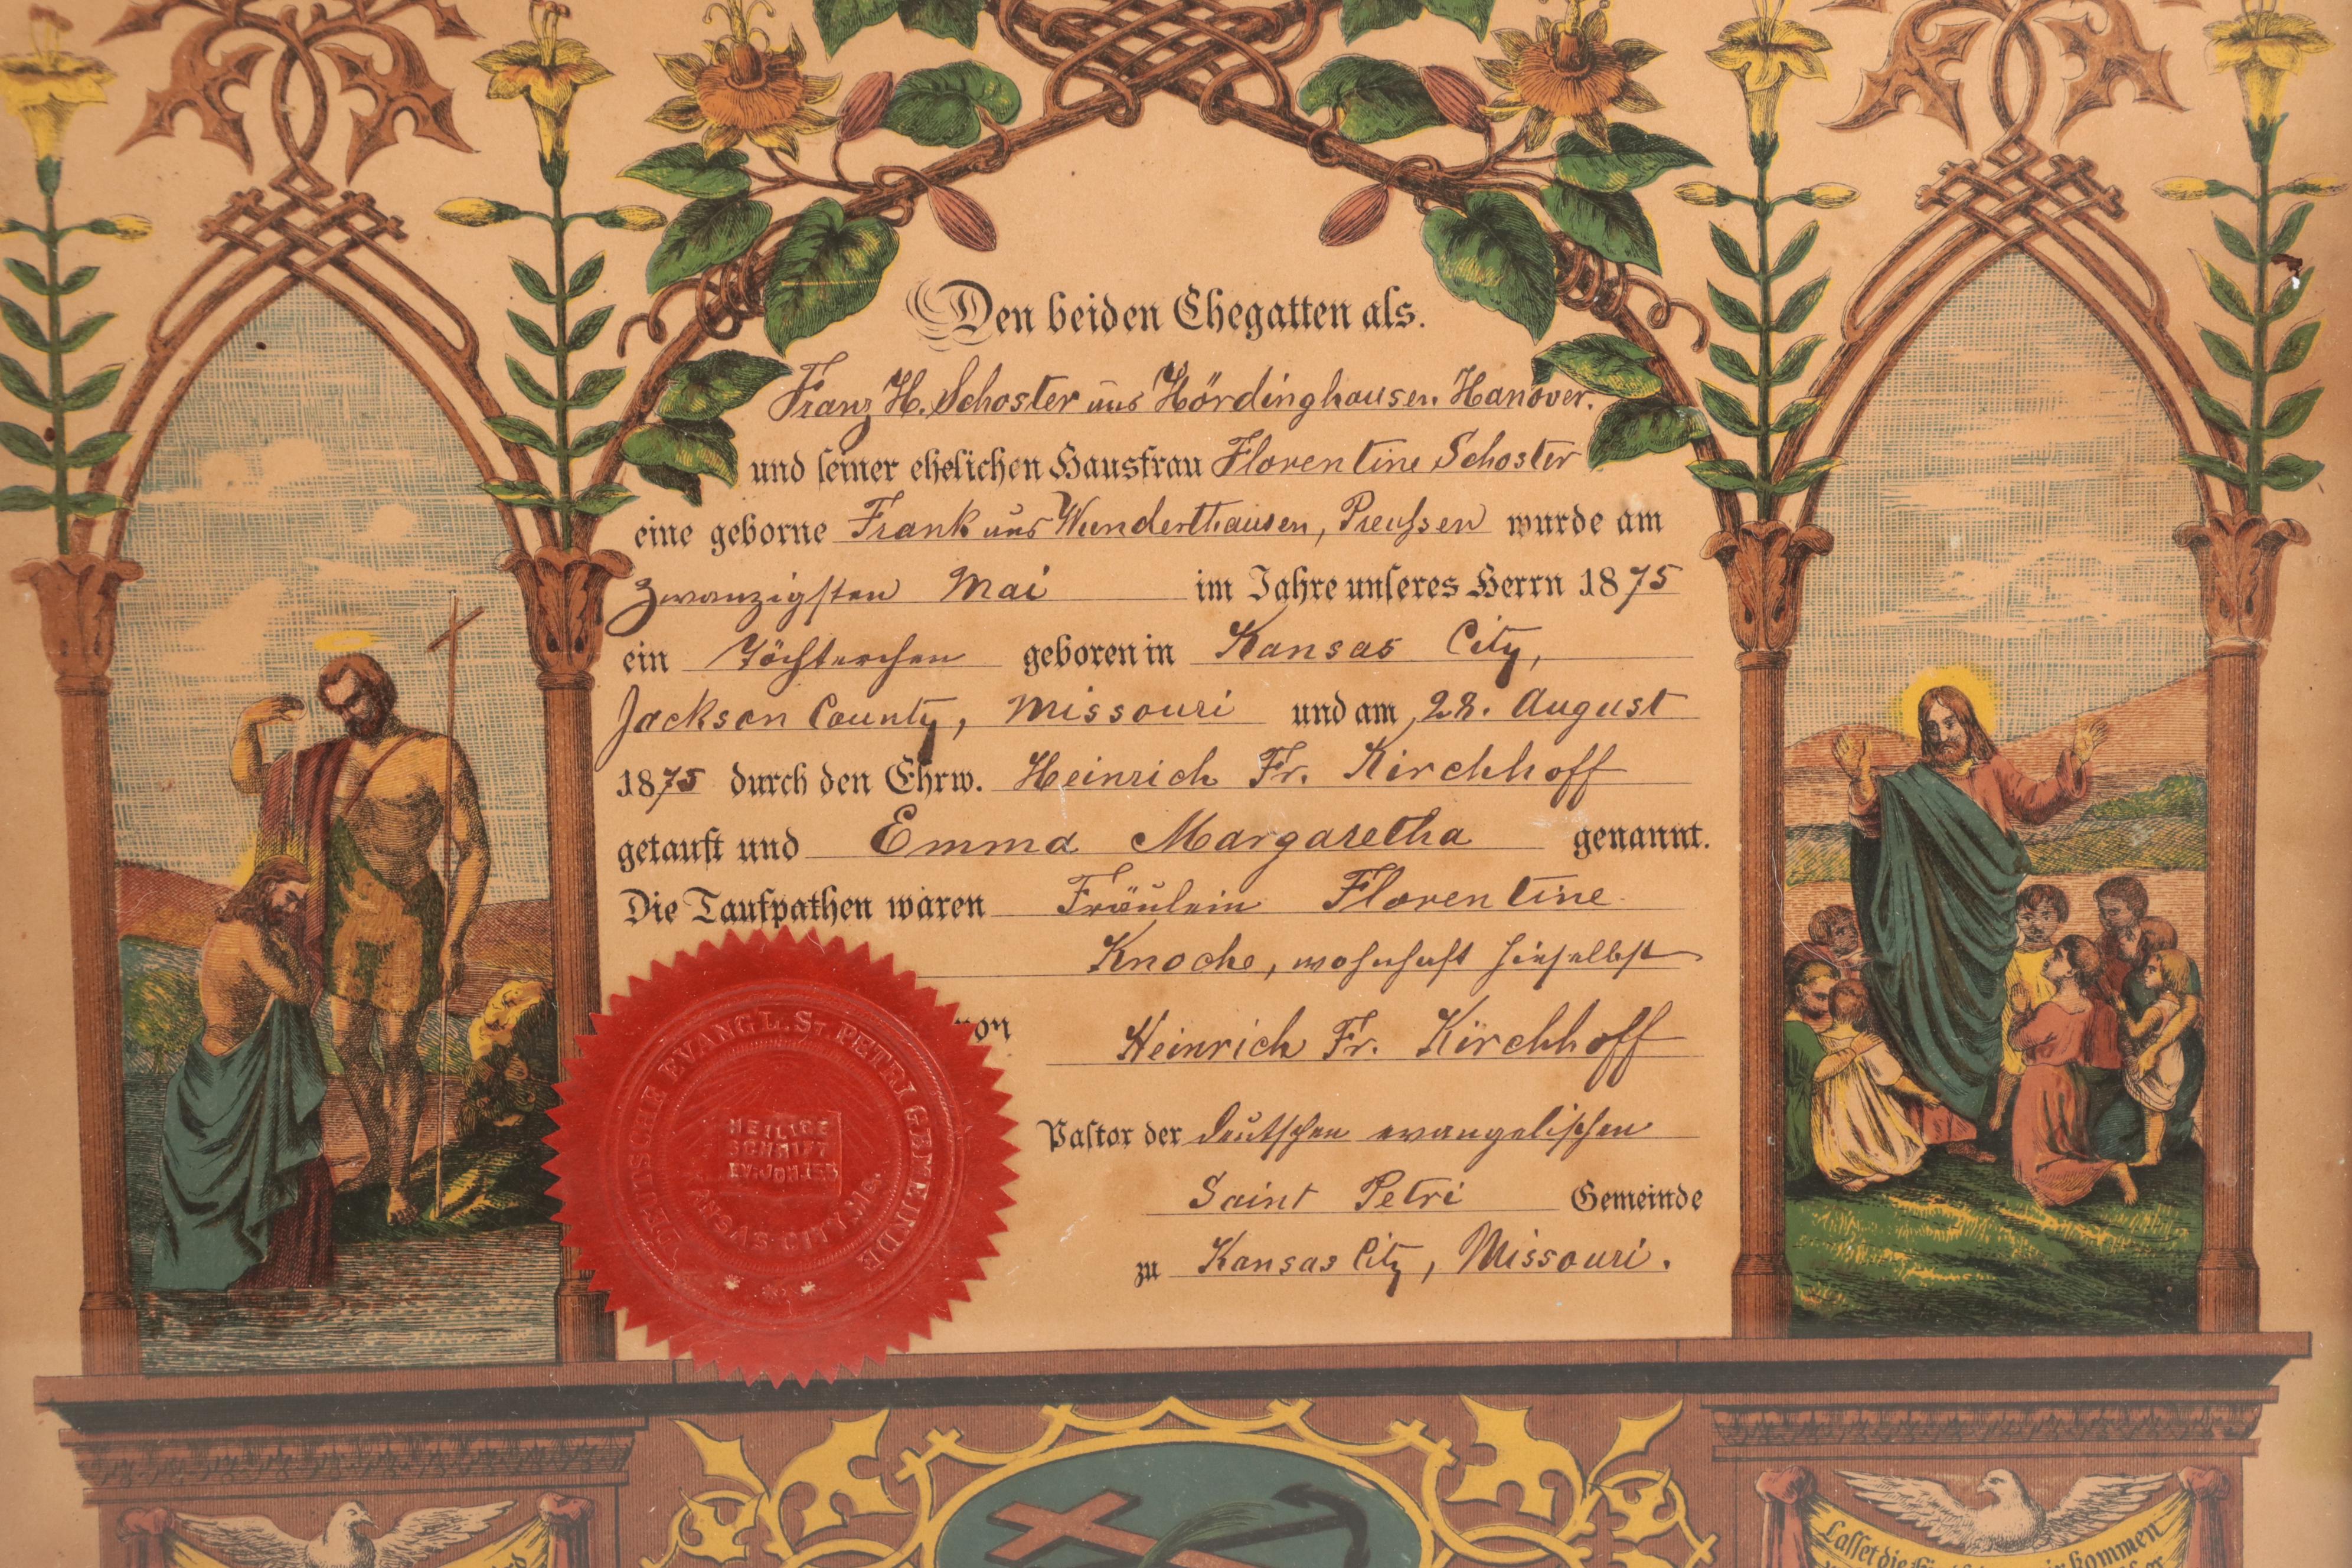 Den beiden Ehegatten als.
Franz H. Schoster aus Hördinghausen. Hanover.
und seiner ehelichen Hausfrau Florentine Schoster
eine geborne Frank aus Wunderthausen, Preussen wurde am
zwanzigsten Mai im Jahre unseres Herrn 1875
ein Töchterchen geboren in Kansas City,
Jackson County, Missouri und am 28. August
1875 durch den Ehrw. Heinrich Fr. Kirchhoff
getauft und Emma Margaretha genannt.
Die Taufpathen waren Fräulein Florentine
Knoche, wohnhaft hieselbst
von Heinrich Fr. Kirchhoff
Pastor der deutschen evangelischen
Saint Petri Gemeinde
zu Kansas City, Missouri.
DEUTSCHE EVANGL. ST. PETRI GEMEINDE
HEILIGE
SCHRIFT
EV: JOH.
KANSAS CITY, Mo.
Lasset die Kindlein zu mir kommen